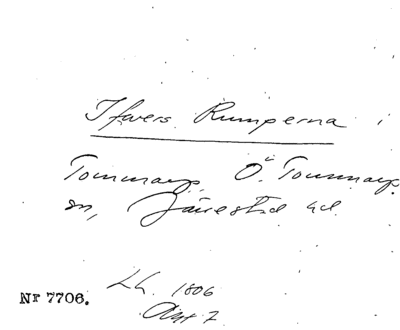 Ifvers Rumperna
Tommarp, Ö. Tommarp.
sn, Järrestad hd.
Lh. 1806
Akt 7
Nr 7706.